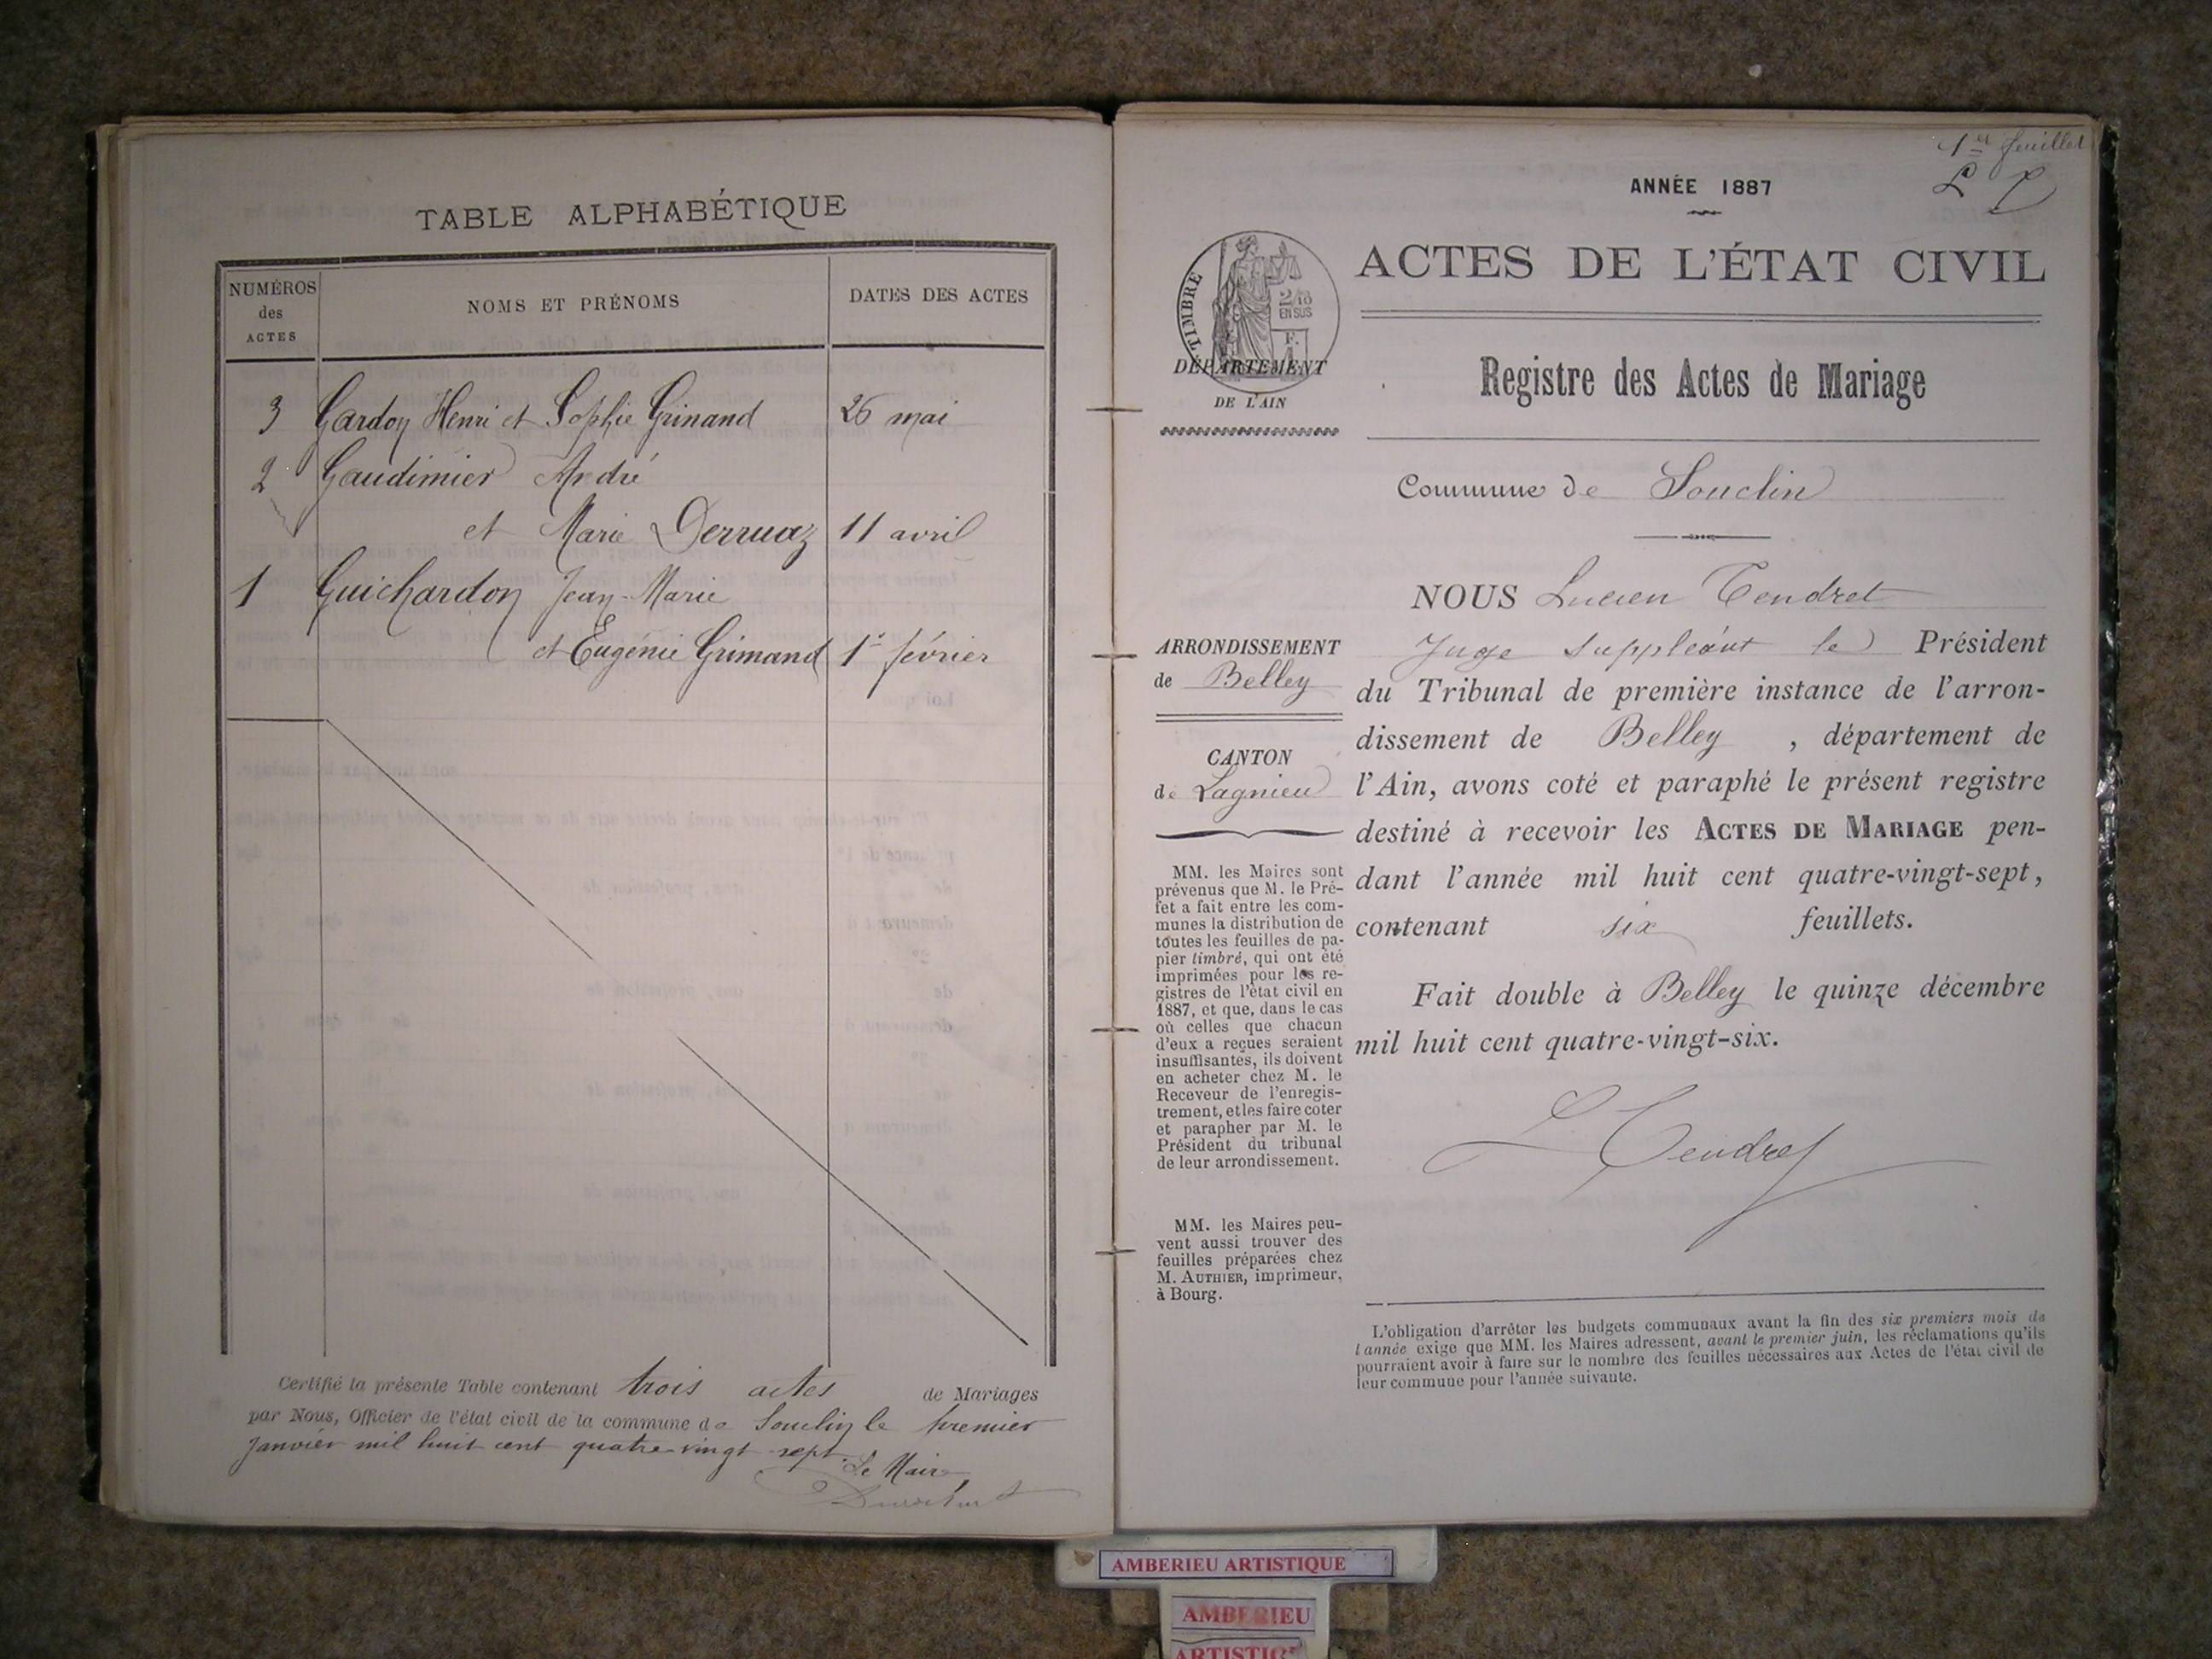 TABLE ALPHABÉTIQUE
NUMÉROS des ACTES
NOMS ET PRÉNOMS
DATES DES ACTES
3 Gardon Henri et Sophie Grinand 26 mai
2 Gaudimier André
et Marie Derruaz 11 avril
1 Guichardon Jean-Marie
et Eugénie Grimand 1er février
Certifié la présente Table contenant trois actes de Mariages
par Nous, Officier de l'état civil de la commune de Souclin le premier
Janvier mil huit cent quatre vingt sept. Le Maire
1er feuillet
L T
ANNÉE 1887
TIMBRE
2/10
EN SUS
F.
DÉPARTEMENT
DE L'AIN
ACTES DE L'ÉTAT CIVIL
Registre des Actes de Mariage
Commune de Souclin
ARRONDISSEMENT
de Belley
CANTON
de Lagnieu
MM. les Maires sont
prévenus que M. le Pré-
fet a fait entre les com-
munes la distribution de
toutes les feuilles de pa-
pier timbré, qui ont été
imprimées pour les re-
gistres de l'état civil en
1887, et que, dans le cas
où celles que chacun
d'eux a reçues seraient
insuffisantes, ils doivent
en acheter chez M. le
Receveur de l'enregis-
trement, et les faire coter
et parapher par M. le
Président du tribunal
de leur arrondissement.
MM. les Maires peu-
vent aussi trouver des
feuilles préparées chez
M. AUTHIER, imprimeur,
à Bourg.
NOUS Lucien Tendret
Juge suppléant le Président
du Tribunal de première instance de l'arron-
dissement de Belley, département de
l'Ain, avons coté et paraphé le présent registre
destiné à recevoir les ACTES DE MARIAGE pen-
dant l'année mil huit cent quatre-vingt-sept,
contenant six feuillets.
Fait double à Belley le quinze décembre
mil huit cent quatre-vingt-six.
L Tendret
L'obligation d'arrêter les budgets communaux avant la fin des six premiers mois de
l'année exige que MM. les Maires adressent, avant le premier juin, les réclamations qu'ils
pourraient avoir à faire sur le nombre des feuilles nécessaires aux Actes de l'état civil de
leur commune pour l'année suivante.
AMBERIEU ARTISTIQUE
AMBERIEU
ARTISTIQ